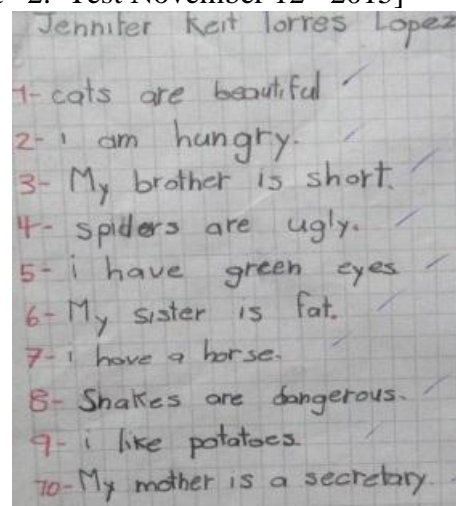 2. Test November 12 2013]
Jennifer Keit Torres Lopez
1- cats are beautiful
2- i am hungry.
3- My brother is short.
4- spiders are ugly.
5- i have green eyes
6- My sister is fat.
7- i have a horse.
8- Snakes are dangerous.
9- i like potatoes.
10- My mother is a secretary.